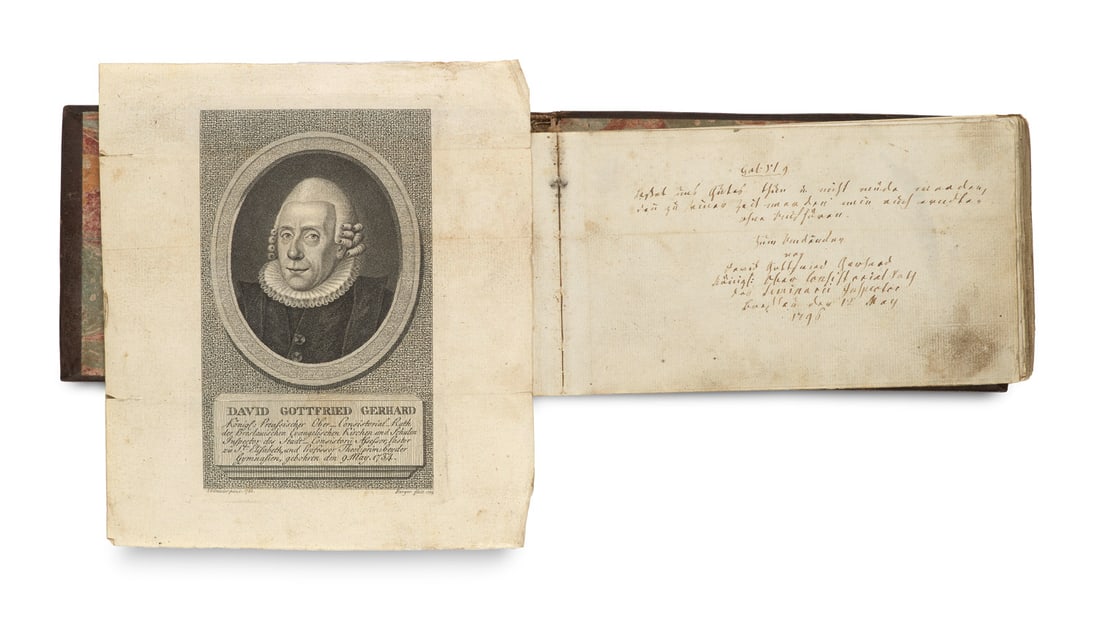 DAVID GOTTFRIED GERHARD
Königl. Preussischer Ober-Consistorial-Rath
der Breslauischen Evangelischen Kirchen und Schulen
Inspector des Stadt-Consistorii Assessor, Pastor
zu St. Elisabeth, und Professor Theol. prim. beyder
Gymnasien, gebohren den 9. May. 1734.
Berger
Gal: VI 9
Lasset uns Gutes thun u nicht müde werden,
denn zu seiner Zeit werden wir auch erndten
ohne Aufhören.
Zum Andenken
von
David Gottfried Gerhard
Königl: Ober Consistorial Rath
des Seminarii Inspector
Breslau den 12 May
1796